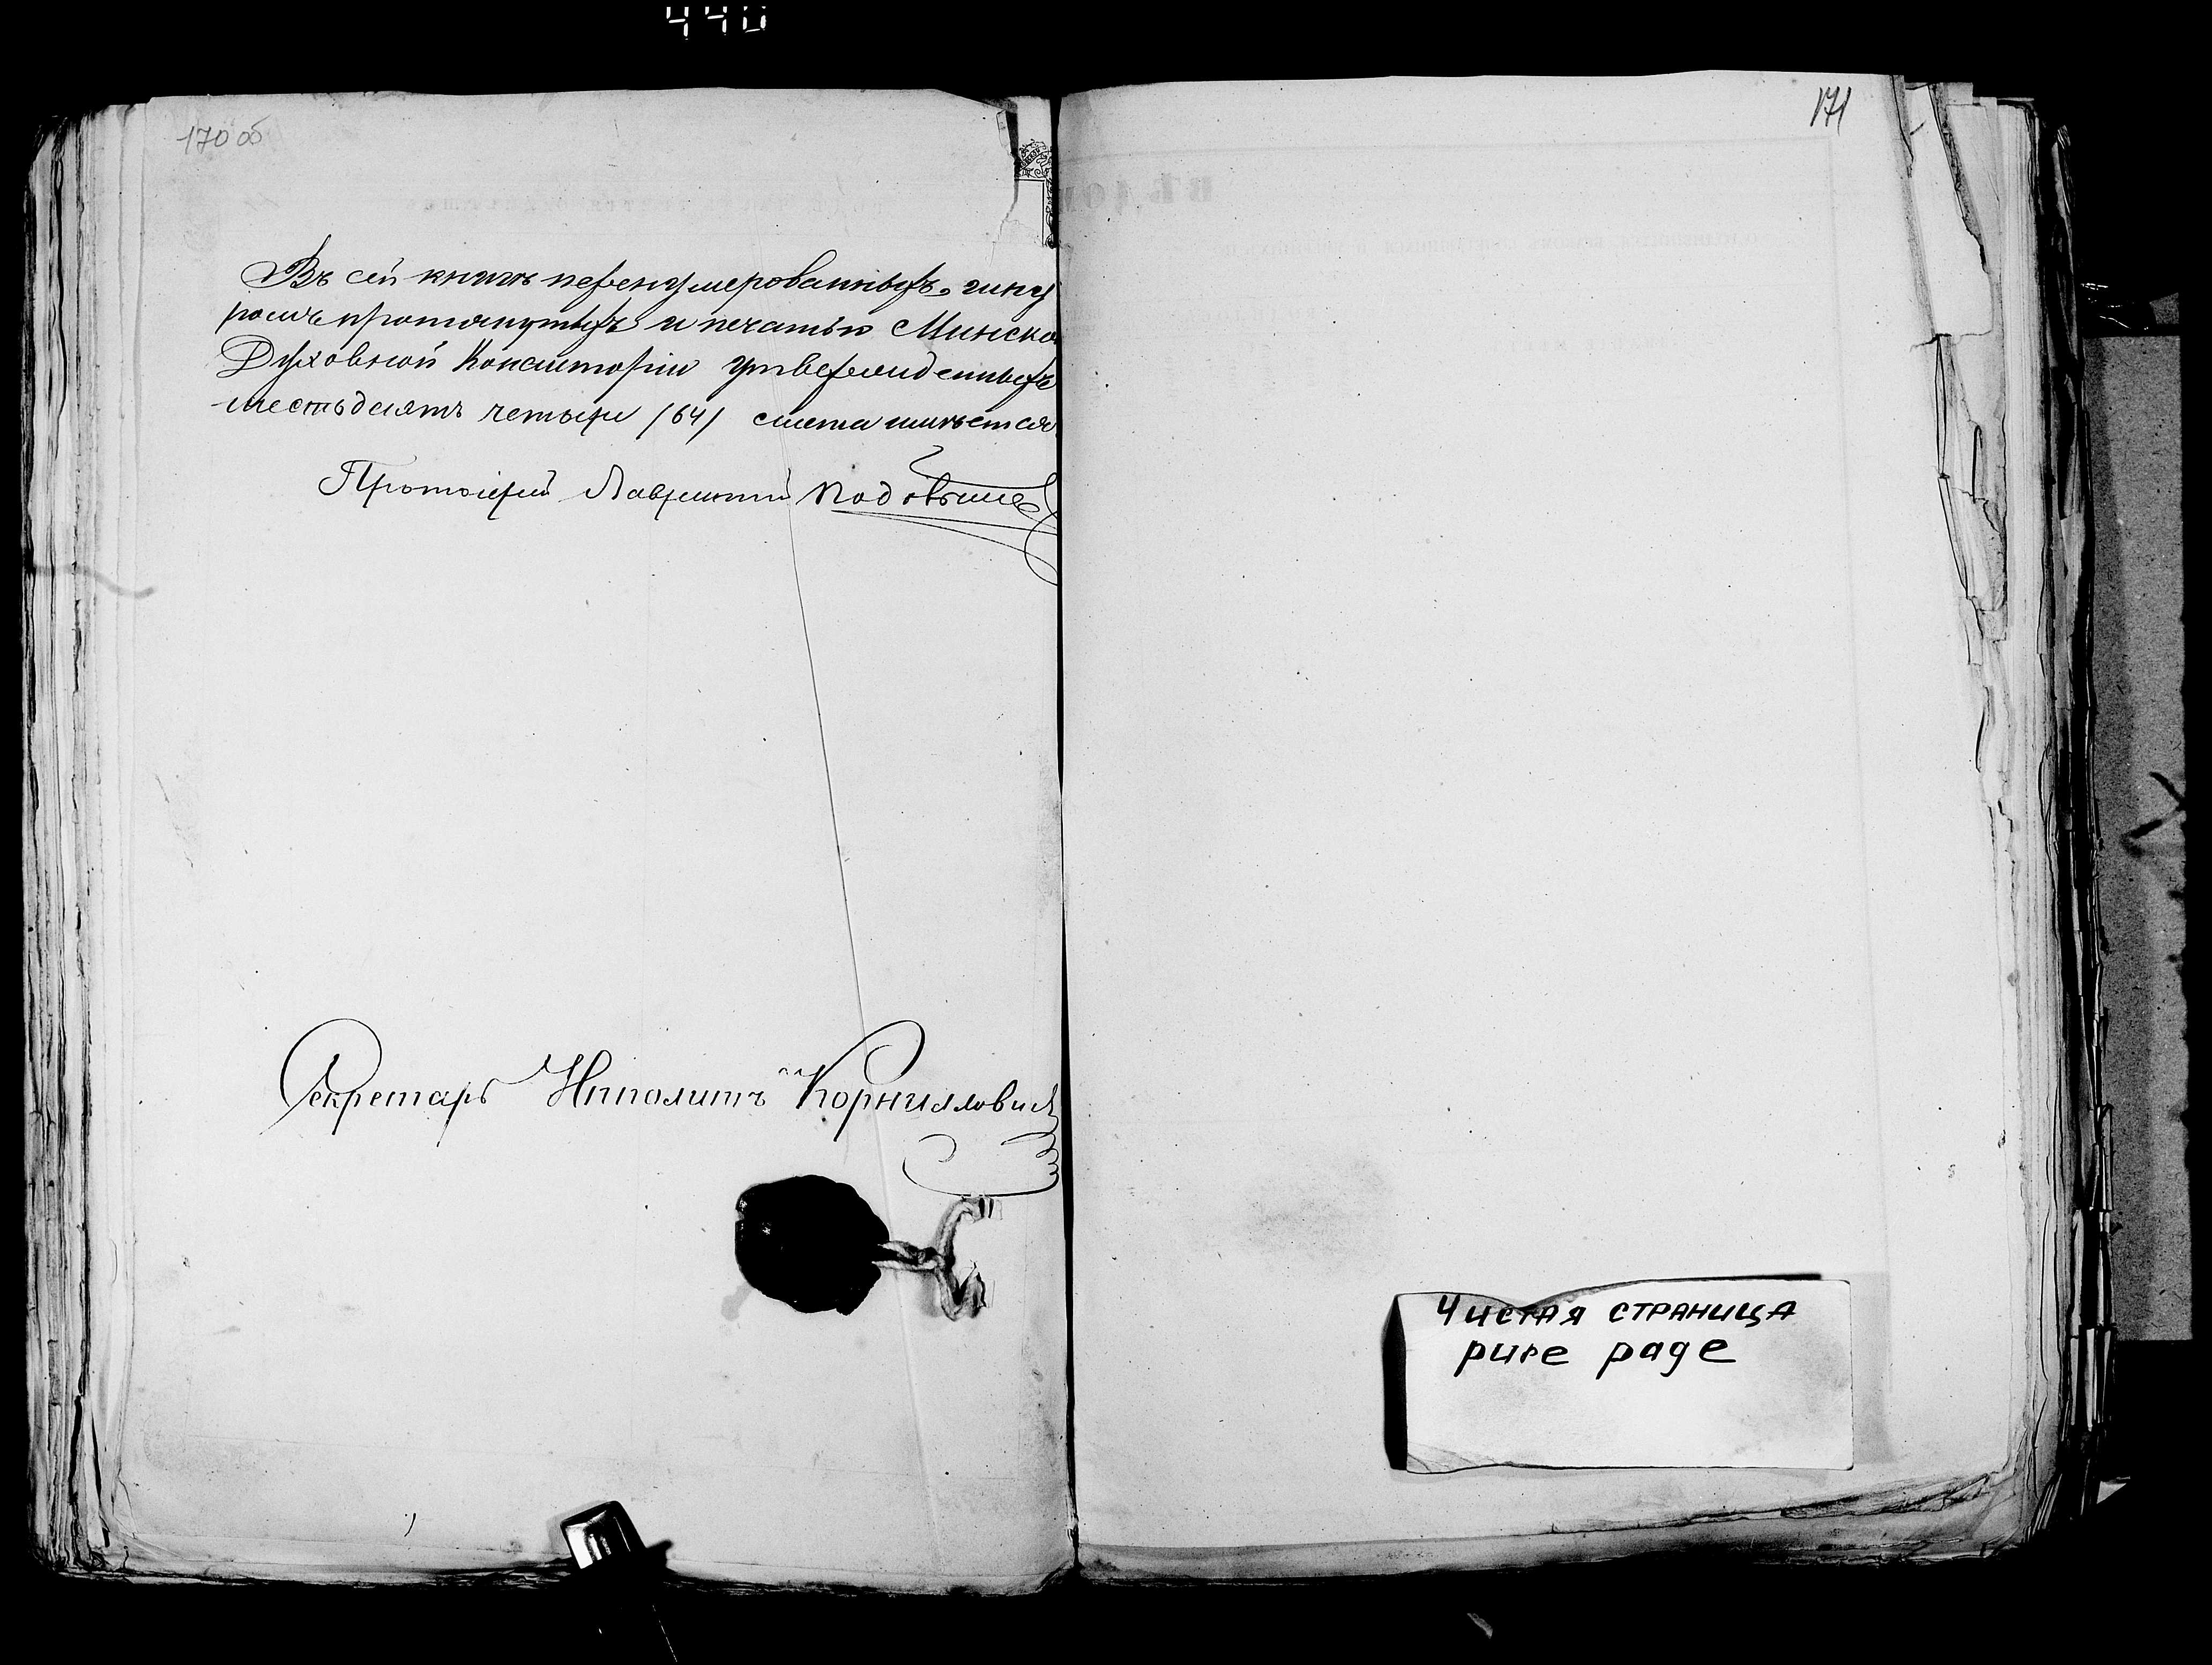 440
170 об
Въ сей книгѣ перенумерованныхъ, шну
ромъ протянутыхъ и печатью Минской
Духовной Консисторіи утвержденныхъ
шестьдесятъ четыре (64) листа имѣется
Протоіерей Лаврентій
Секретарь Ипполитъ Корнилович
171
Чистая страница
pure page